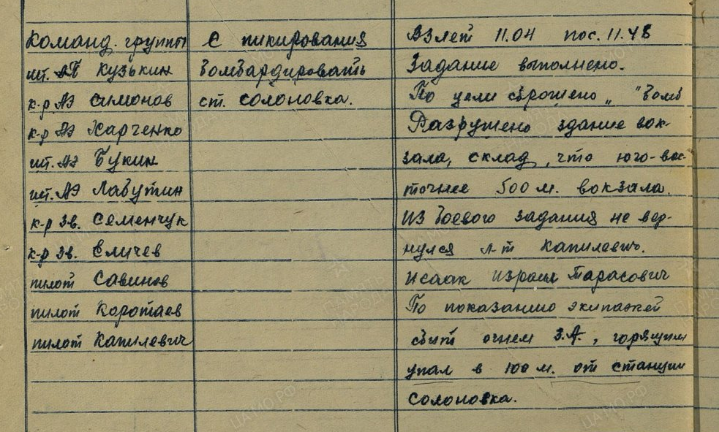 Команд. группы
шт. АП Кузькин
к-р АЭ Симонов
к-р АЭ Харченко
шт. АЭ Букин
шт. АЭ Лабутин
к-р Зв. Семенчук
к-р Зв. Еличев
пилот Савинов
пилот Коротаев
пилот Капилевич
С пикирования
бомбардировать
ст. Солоновка.
Взлет 11.04 пос. 11.48
Задание выполнено.
По цели сброшено „ " бомб
Разрушено здание вок-
зала, склад, что юго-вос-
точнее 500 м. вокзала.
Из боевого задания не вер-
нулся л-т Капилевич.
Исаак Израил Тарасович
По показанию экипажей
сбит огнем З.А., горящим
упал в 100 м. от станции
Солоновка.